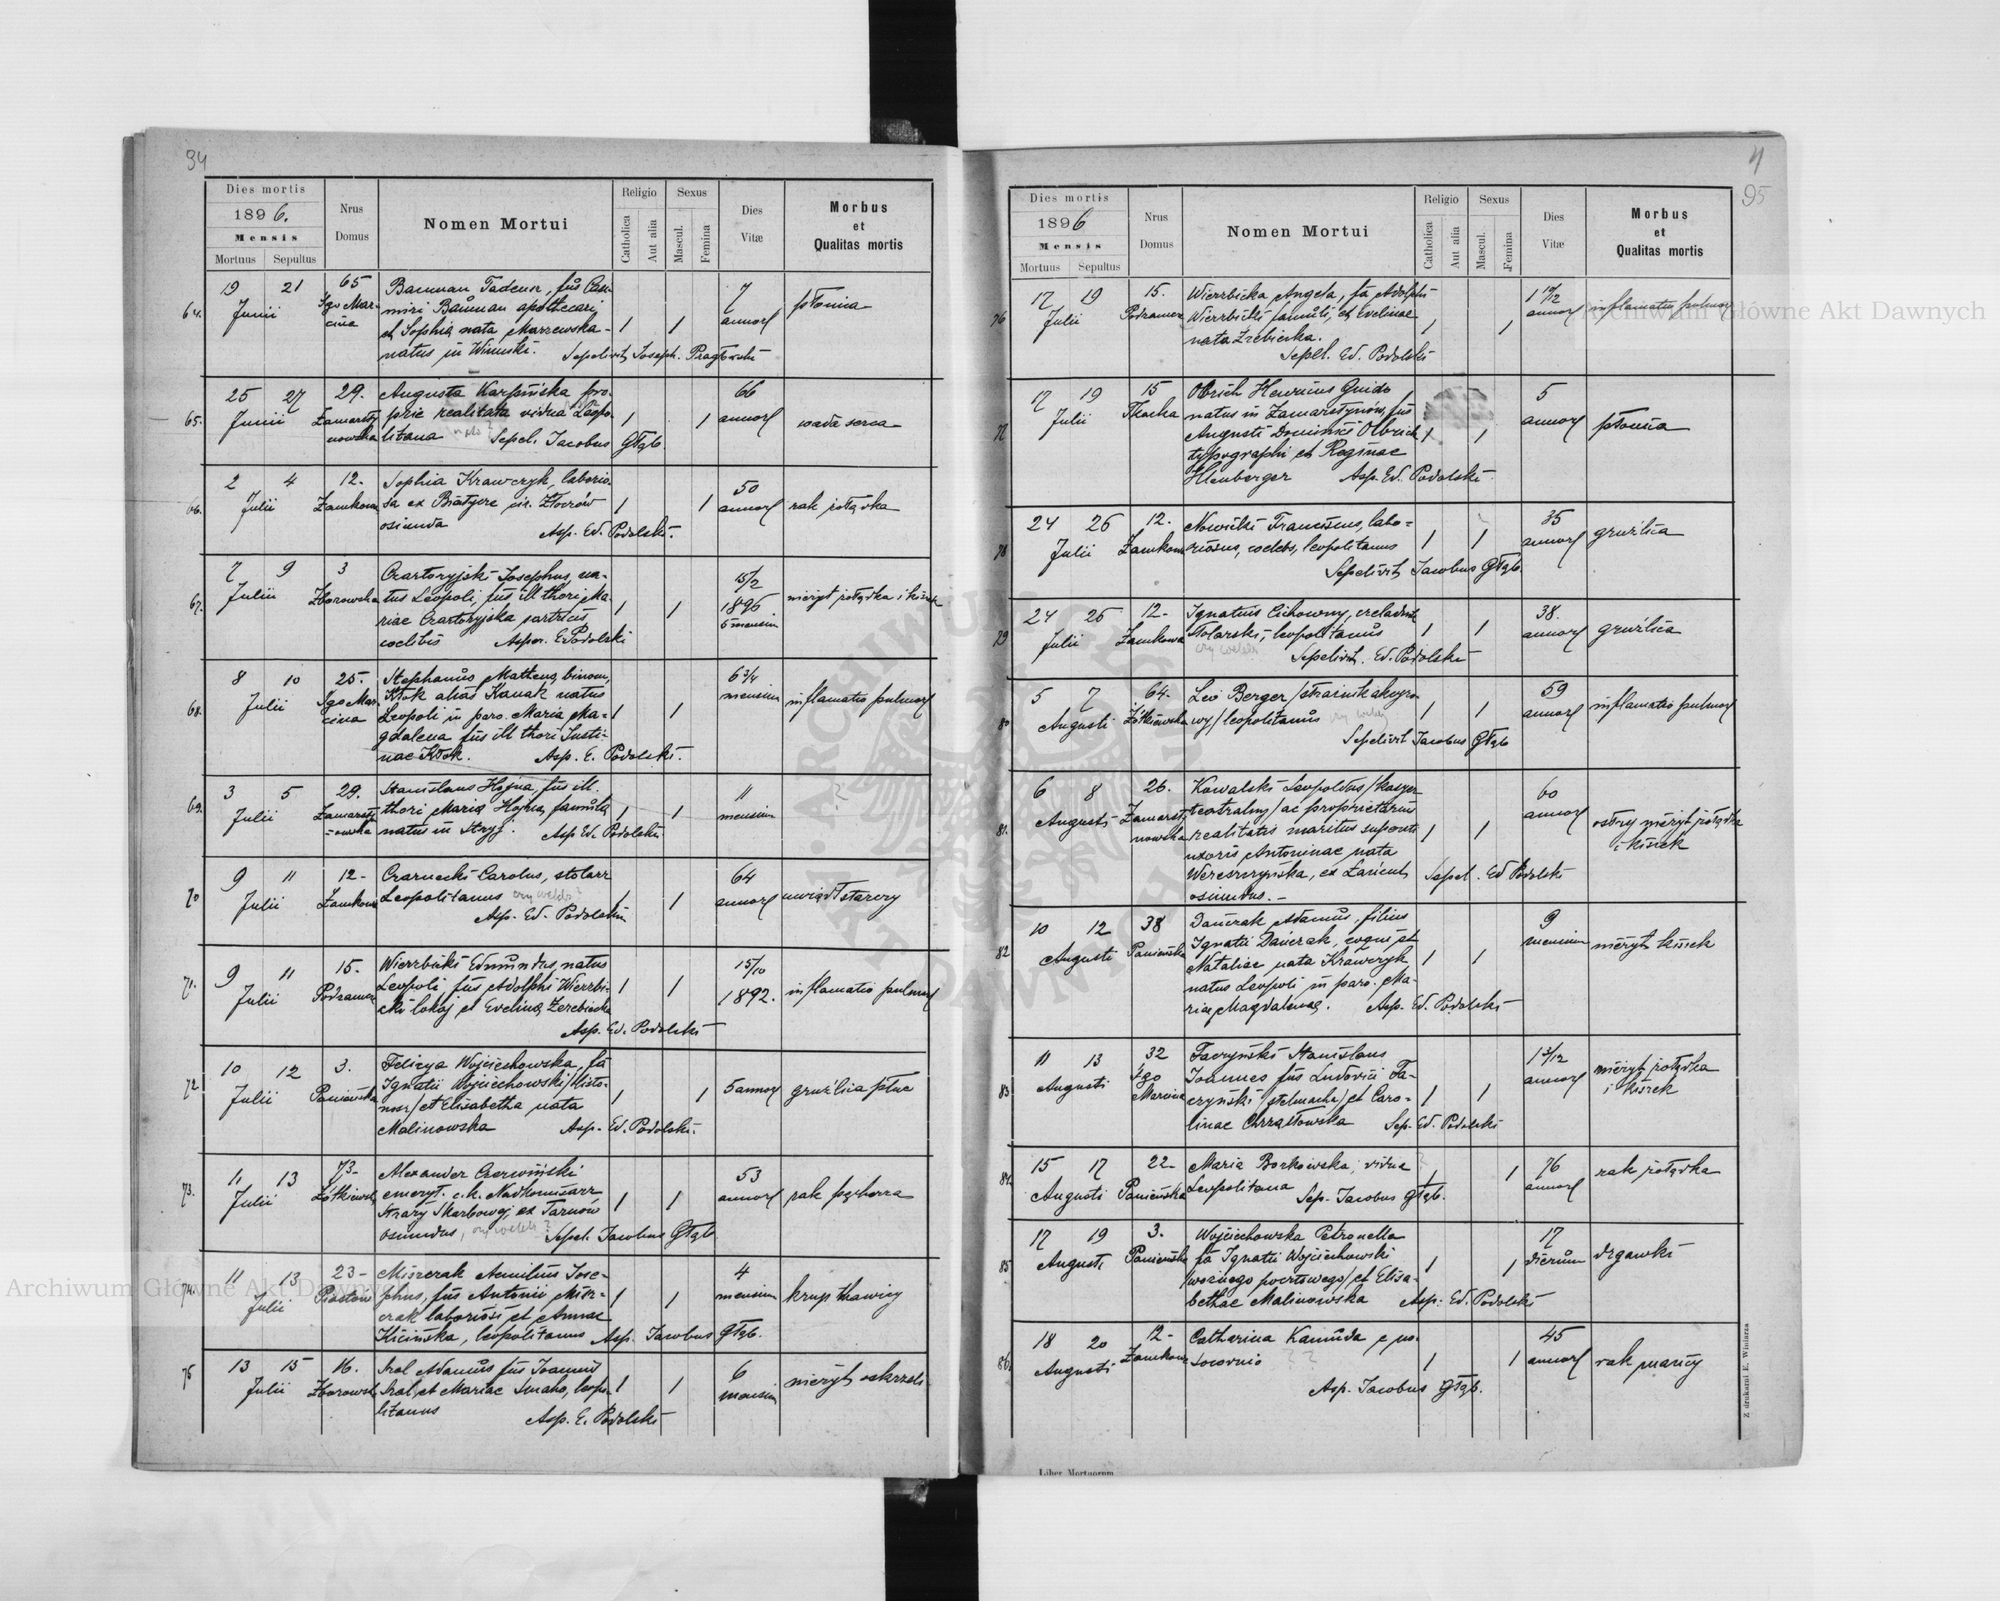 94
Dies mortis
1896.
Mensis
Mortuus Sepultus
Nrus
Domus
Nomen Mortui
Religio
Catholica
Aut alia
Sexus
Mascul.
Femina
Dies
Vitæ
Morbus
et
Qualitas mortis
64.
19 21
Junii
65
Sgo Mar-
cina
miri Bauman apothecarii
et Sophia nata Marzewska
natus in Winniki. Sepelivit Joseph.
1 1
7
annor
płonica
65.
25 27
Junii
29.
Zamarsty
nowska
Augusta Karpińska pro-
prie realitata vidua Leopo-
litana Sepel. Jacobus Głąb.
1 1
66
annor
wada serca
66.
2 4
Julii
12.
Zamkowa
Sophia Krawczyk, laborio
sa ex
oriunda Asp. Ed. Podolski.
1 1
50
annor
rak żołądka
67.
7 9
Julii
3
Zborowska
Czartoryjski Josephus, na-
tus Leopoli, fus ill thori Ma-
riae Czartoryjska
coelibis Asper. E. Podolski
1 1
15/2
1896
5 mensium
nieżyt żołądka i kiszek
68.
8 10
Julii
25.
Sgo Mar
cina
Stephanus Matheus, binom,
Kłok alias Kanak natus
Leopoli in paro. Maria Ma-
gdalena fus ill thori Justi-
nae Kłok. Asp. E. Podolski.
1 1
6 3/4
mensium
inflamatio pulmon
69.
3 5
Julii
29.
Zamarsty
-nowska
Stanislaus Hojna, fus ill.
thori Maria Hojna, famula,
natus in Stryj. Asp. Ed. Podolski.
1 1
11
mensium
70
9 11
Julii
12-
Zamkowa
Czarnecki Carolus, stolarz
Leopolitanus czy coelebs?
Asp. Ed. Podolski
1 1
64
annor
uwiąd starczy
71.
9 11
Julii
15.
Podzamcze
Wierzbicki Edmundus, natus
Leopoli, fus Adolphi Wierzbi-
cki lokaj et Evelina
Asp. Ed. Podolski
1 1
15/10
1892.
inflamatio pulmon
72
10 12
Julii
3.
Panieńska
Felicya Wojciechowska, fa
Ignatii Wojciechowski/listo-
nosz/et Elisabetha nata
Malinowska Asp. Ed. Podolski.
1 1
5 annor
gruźlica płuc
73.
11 13
Julii
73-
Żółkiewsk
Alexander Czerwiński
emeryt. c.k. Nadkomisarz
straży Skarbowej, ex Tarnów
oriundus, czy coelebs? Sepel. Jacobus Głąb
1 1
53
annor
rak pęcherza
74.
11 13
Julii
23-
Miszczak Aemilius Jose-
phus, fus Antonii Misz-
czak laboriosi et Annae
Kicińska, leopolitanus Asp. Jacobus Głąb.
1 1
4
mensium
krup tkawicy
75
13 15
Julii
16.
Zborowsk
Kral Adamus fus Joannis
Kral, et Mariae leopo-
litanus Asp. E. Podolski
1 1
6
mensium
nieżyt oskrzeli
4
95
Dies mortis
1896
Mensis
Mortuus Sepultus
Nrus
Domus
Nomen Mortui
Religio
Catholica
Aut alia
Sexus
Mascul.
Femina
Dies
Vitæ
Morbus
et
Qualitas mortis
76
17 19
Julii
15.
Podzamcze
Wierzbicka Angela, fa Adolphi
Wierzbicki famuli, et Evelinae
nata
Sepel. Ed. Podolski
1 1
annor
inflamatio pulmon
77
17 19
Julii
15
Tkacka
Olbrich Henricus Guido
natus in Zamarstynów, fus
Augusti Dominici Olbrich
typographi et Reginae
Hlenberger Asp. Ed. Podolski.
1 1
5
annor
płonica
78
24 26
Julii
12.
Zamkowa
Nowicki Franciscus, labo-
riosus, coelebs, leopolitanus
Sepelivit Jacobus Głąb.
1 1
35
annor
gruźlica
79
24 26
Julii
12-
Zamkowa
Ignatius Cichowny, czeladnik
stolarski, leopolitanus
czy coelebs Sepelivit. Ed. Podolski
1 1
38.
annor
gruźlica
80
5 7
Augusti
64.
Żółkiewska
Leo Berger /strażnik akcyzo-
wy/ leopolitanus czy coelebs
Sepelivit Jacobus Głąb
1 1
59
annor
inflamatio pulmon
81.
6 8
Augusti
26.
Zamarsty
nowska
Kowalski Leopoldus/kasyer
teatralny/ac proprietarius
realitatis maritus
uxoris Antoninae nata
Wereszczyńska, ex Łańcut Sepel. Ed Podolski
oriundus.-
1 1
60
annor
ostry nieżyt żołądka
i kiszek
82
10 12
Augusti
38
Panieńska
Dańczak Adamus, filius
Ignatii Dańczak, et
Nataliae nata Krawczyk
natus Leopoli in paro. Ma-
riae Magdalenae. Asp. Ed. Podolski
1 1
9
mensium
nieżyt kiszek
83
11 13
Augusti
32
Sgo
Marcina
Faczyński Stanislaus
Joannes fus Ludovici Fa-
czyński/stelmacha/et Caro-
linae Chrząstowska Sep. Ed. Podolski
1 1
1 3/12
annor
nieżyt żołądka
i kiszek
84.
15 17
Augusti
22-
Panieńska
Maria Borkowska, vidua
Leopolitana Sep. Jacobus Głąb.
1 1
76
annor
rak żołądka
85
17 19
Augusti
3.
Panieńska
Wojciechowska Petronella
fa Ignatii Wojciechowski
/woźnego pocztowego/et Elisa-
bethae Malinowska Asp. Ed. Podolski
1 1
17
dierum
drgawki
86.
18 20
Augusti
12-
Zamkowa
Catharina Kamuda
? ?
Asp. Jacobus Głąb.
1 1
45
annor
rak macicy
Z drukarni E. Winiarza
Liber Mortuorum
Archiwum Główne Akt Dawnych
Archiwum Główne Akt Dawnych
ARCHIWUM GŁÓWNE AKT DAWNYCH